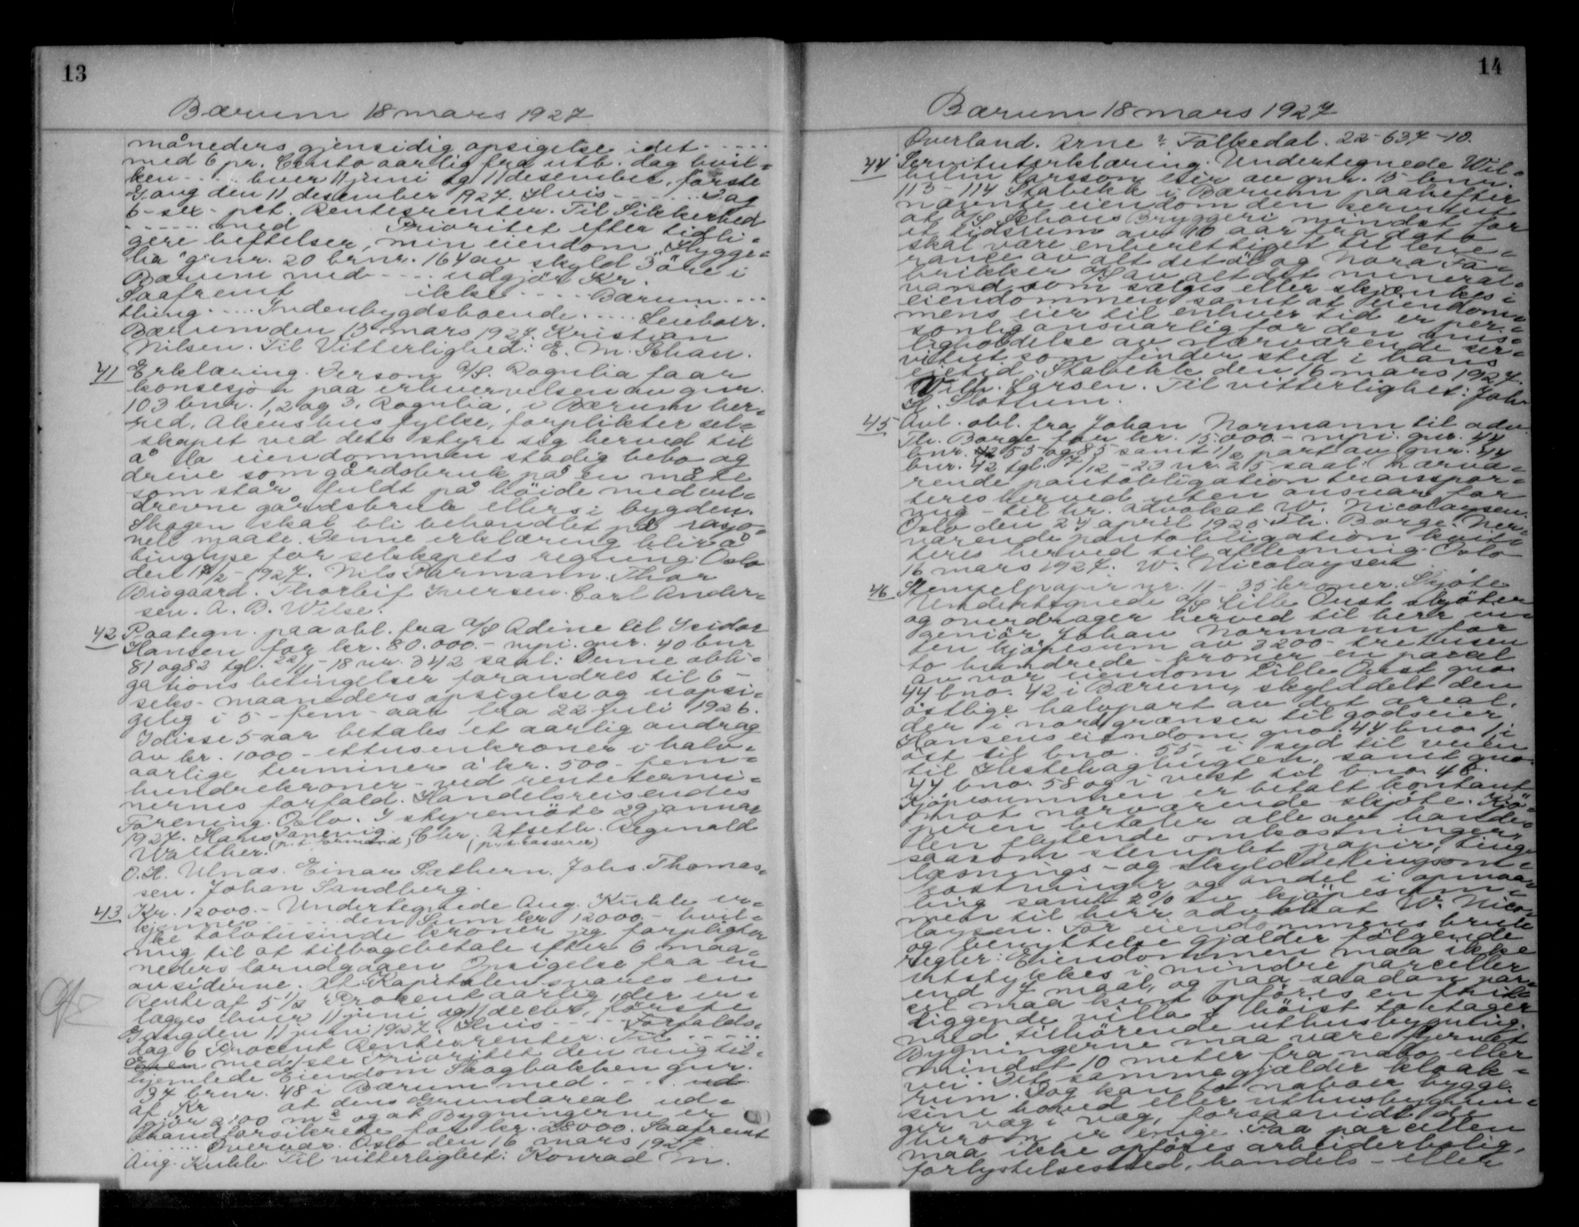 13
Bærum 18 mars 1927
måneders gjensidig opsigelse idet . . . . .
med 6 pr. Cento aarlig fra utb. dag hvil-
ken . . . hver 11 juni og 11 desember, første
Gang den 11 desember 1927. Hvis . . . . dag
6 - sex - pct. Rentesrenter. Til Sikkerhed
. . . . . med Prioritet efter tidli-
gere heftelser, min eiendom Hygge-
lia gnr. 20 brnr. 164 av skyld 5 öre i
Bærum med . . . . udgjør Kr.
Saafremt ikke . . . . Bærum . . . .
thing . . . . Indenbygdsboende . . . . Leieboer.
Bærum den 15 mars 1927. Kristian
Nilsen. Til Vitterlighed: E. M. Schau.
41 Erklæring. Dersom A/S Rognlia faar
konsesjon paa erhvervelsen av gnr.
103 bnr. 1, 2 og 3, Rognlia, i Bærum her-
red, Akershus fylke, forplikter sel-
skapet ved dets styre sig herved til
å la eiendommen stadig bebo og
drive som gårdsbruk på en måte
som står fuldt på høide med vel-
drevne gårdsbruk ellers i bygden.
Skogen skal bli behandlet på rasjo-
nell maate. Denne erklæring blir å
tinglyse for selskapets regning. Oslo
den 14/2 - 1927. Nils Parmann. Thor
Bisgaard. Thorleif Iversen. Carl Ander-
sen. A. B. Wilse.
42 Paategn. paa obl. fra A/S Adine til Isidor
Hansen for kr. 80.000.- mpi. gnr. 40 bnr
81 og 82 tgl. 22/11 - 18 nr. 342 saal: Denne obli-
gations betingelser forandres til 6 -
seks - maaneders opsigelse og uopsi-
gelig i 5 - fem - aar fra 22 juli 1926.
I disse 5 aar betales et aarlig avdrag
av kr. 1000 - ettusenkroner i halv-
aarlige terminer à kr. 500 - fem-
hundrekroner - ved rentetermi-
nernes forfald. Handelsreisendes
Forening. Oslo. I styremöte 29 januar
1927. Hans Zanevig. (p.t. formand) Chr. Afseth. (p.t. kasserer) Reginald
Walther.
O. H. Ulnæs. Einar Sæthern. Johs Thomas-
sen. Johan Sandberg.
43 Kr. 12000.- Undertegnede Aug. Kuhle er-
kjenner . . . . den Sum kr 12000.- hvil-
ke tolvtusinde kroner jeg forpligter
mig til at tilbagebetale efter 6 maa-
neders lovudgaaen Opsigelse fra en
av siderne. At Kapitalen svares en
Rente af 5 1/2 Procent aarlig, der er-
lægges hver 11 juni og 11 decbr, förste
Gang den 11 juni 1927. Hvis . . . . Forfalds-
dag 6 Procent Rentesrenter. Til . . . . .
med 1ste Prioritet den mig til-
hjemlede Eiendom Skogbakken gnr.
37 brnr. 48 i Bærum med . . . . ud
af Kr at dens Grundareal ud-
gjör 2100 m² og at Bygningerne er
brandforsikrede for kr. 28000. Saafremt
. . . . . Overrets. Oslo den 16 mars 1927.
Aug. Kuhle Til vitterlighet: Konrad M.
14
Bærum 18 mars 1927
Överland. Arne Falkedal. 22-637-10.
44 Servituterklæring. Undertegnede Wil-
helm Larssom eier av gnr. 15 bnr.
113 - 114 Stabekk i Bærum paahefter
nævnte eiendom den servitut
at A/S Schous Bryggeri mindst for
et tidsrum av 10 aar fra dato
skal være eneberettiget til leve-
rance av alt det öl og Nora Fa-
brikker A/S av alt det mineral-
vand som sælges eller skjænkes i
eiendommen samt at eiendom-
mens eier til enhver tid er per-
sonlig ansvarlig for den mis-
ligholdelse av nærværende ser-
vitut som finder sted i hans
eiertid. Stabekk den 16 mars 1927.
Wilh. Larsen. Til vitterlighet: Joh.
A. Slottum.
45 Avl. obl. fra Johan Normann til adv.
Th. Borge for kr. 15.000.- mpi. gnr. 44
bnr. 42 55 og 85 samt 1/2 part av gnr. 44
bnr. 42 tgl. 7/12 - 23 nr. 215 saal: Nærvæ-
rende pantobligation transpor-
teres herved uten ansvar for
mig - til hr. advokat W. Nicolaysen.
Oslo den 24 april 1925. Th. Borge. Nær-
værende pantobligation kvit-
teres herved til aflæsning. Oslo
16 mars 1927. W. Nicolaysen
46 Stempelpapir nr. 11 - 35 kroner. Skjöte
Undertegnede A/S Lille Öust skjöter
og overdrager herved til herr in-
geniör Johan Normann for
en kjöpesum av 3200 - tretusen
to hundrede - kroner en parcel
av vor eiendom Lille Öust gno.
44 bno. 42 i Bærum, skylddelt den
östlige halvpart av det areal,
der i nord grænser til godseier
Hansens eiendom gno. 44 bno. 1, i
öst til bno. 55 - i syd til veien
til Hestehagbugten, samt gno.
44 bno. 58 og i vest til bno. 48.
Kjöpesummen er betalt kontant
mot nærværende skjöte. Kjö-
peren betaler alle av hande-
len flytende omkostninger
saasom stemplet papir, ting-
læsnings - og skylddelingsom-
kostninger og andel i opmaa-
ling samt 2% av kjöpesum-
men til herr advokat W. Nico-
laysen. For eiendommens bruk
og benyttelse gjælder fölgende
regler: Eiendommen maa ikke
utstykkes i mindre parceller
end 4 maal, og paa saadan par-
cel maa kun opföres en frit-
liggende villa i höist to etager
med tilhörende uthusbygning.
Bygningerne maa være fjernet
mindst 10 meter fra nabo eller
vei. Det samme gjælder kloak-
rum. Dog kan to naboer bygge
sine hoved eller uthusbygnin-
ger væg i væg, forsaavidt de
herom er enige. Paa parcellen
maa ikke opföres arbeiderbolig,
forlystelsessted, handels - eller